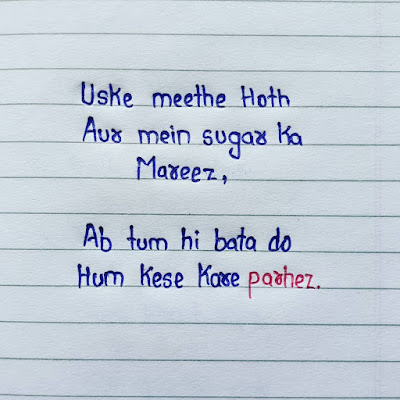 Uske meethe Hoth
Aur mein sugar Ka
Mareez,
Ab tum hi bata do
Hum Kese Kare parhez.